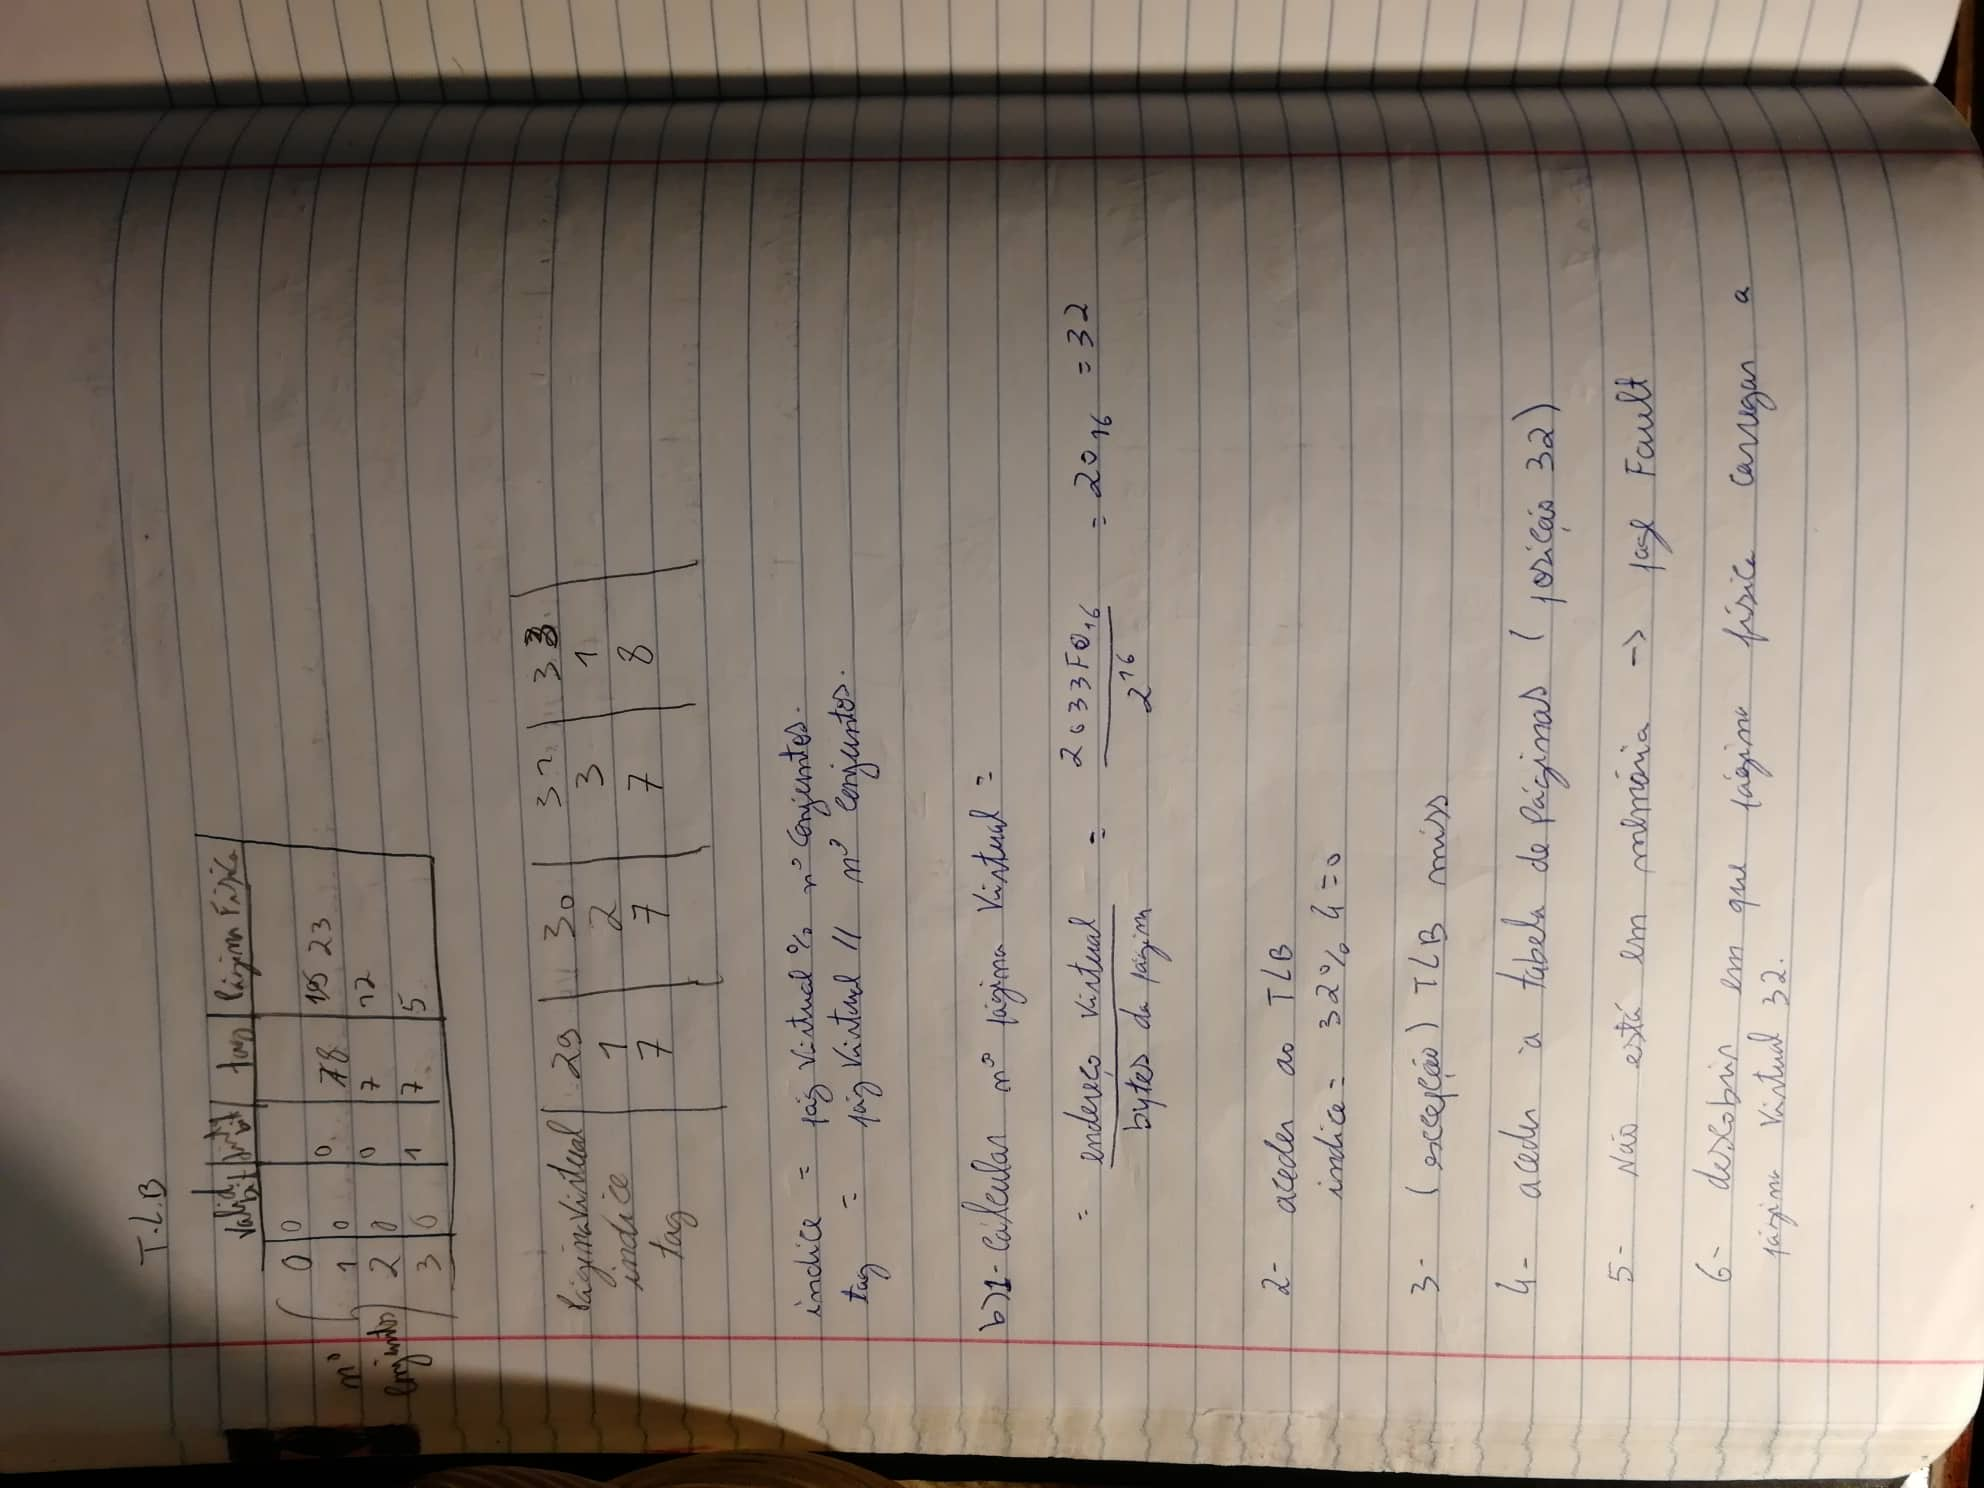 T.L.B
Valid bit | dirty bit | tag | Página Física
0 | 0
1 | 0 | 0 | 8 | 23
2 | 0 | 0 | 7 | 12
3 | 0 | 1 | 7 | 5
nº
Conjuntos
Página Virtual | 29 | 30 | 31 | 33
indice | 1 | 2 | 3 | 1
tag | 7 | 7 | 7 | 8
indice = pág Virtual % nº Conjuntos.
tag = pág Virtual // nº Conjuntos.
b) 1- Calcular nº página Virtual =
= endereço virtual / bytes da página = 2033F0₁₆ / 2¹⁶ = 20₁₆ = 32
2- aceder ao TLB
indice = 32 % 4 = 0
3- (exceção) TLB miss
4- aceder à tabela de Páginas (posição 32)
5- Não está em memória -> page Fault
6- descobrir em que página física carregar a
página virtual 32.